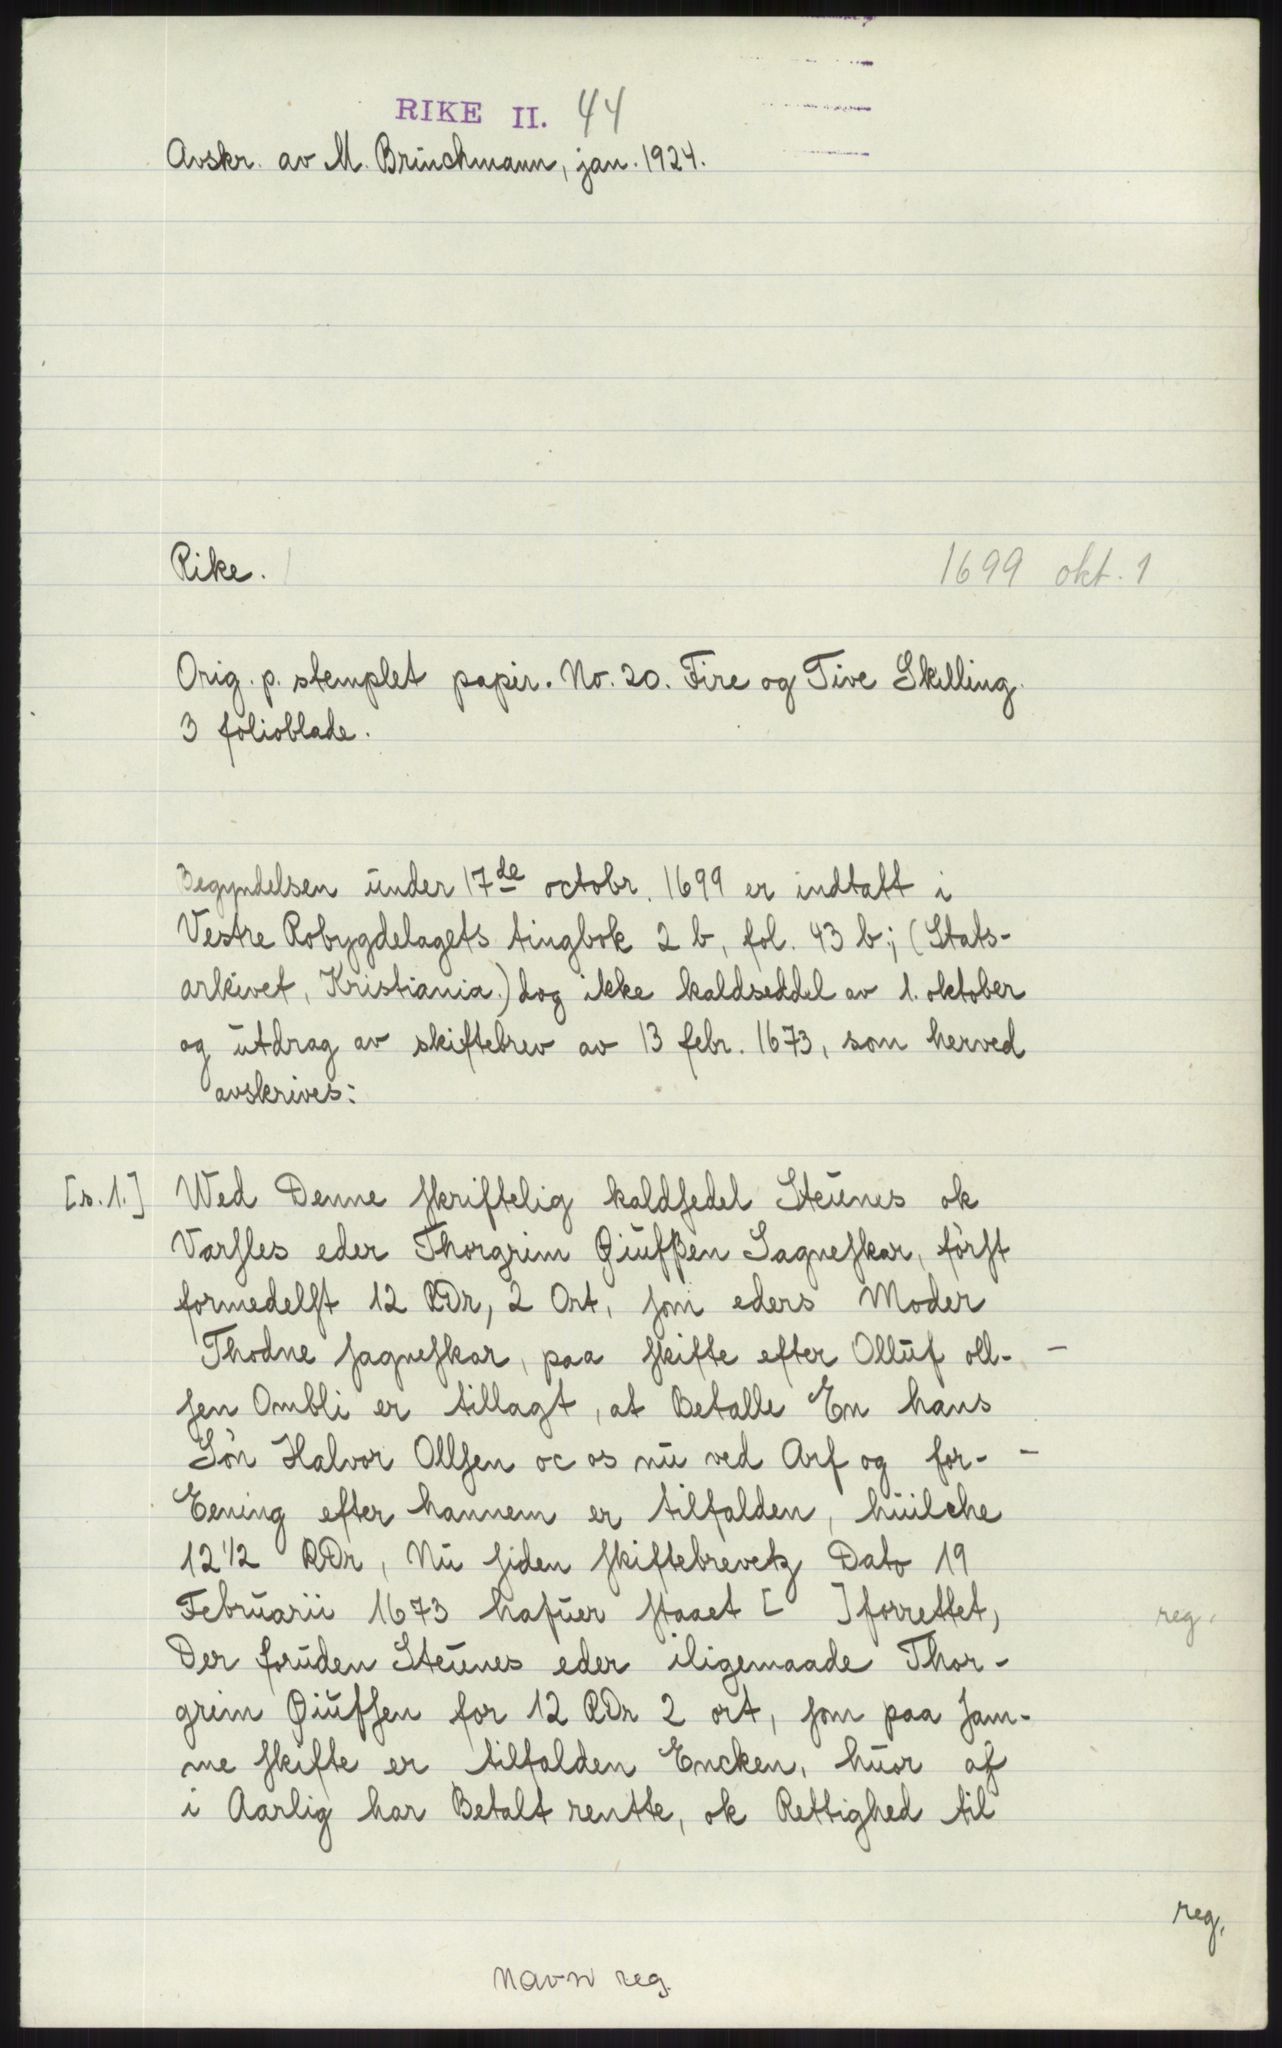 RIKE II. 44
Avskr. av M. Brinchmann, jan. 1924.
Rike.
1699 okt. 1
Orig. p. stemplet papir. No. 20. Fire og Tive Skilling.
3 folioblade.
Begyndelsen under 17de octobr. 1699 er indtatt i
Vestre Robygdelagets tingbok 2 b, fol. 43 b; (Stats-
arkivet, Kristiania.) dog ikke kaldseddel av 1. oktober
og utdrag av skiftebrev av 13 febr. 1673, som herved
avskrives:
[s. 1.] Wed Denne skriftelig kaldsedel Steunes ok
Varsles eder Thorgrim Øiufßen Sagneskar, først
formedelst 12 RDr, 2 Ort, som eders Moder
Thodne Sagneskar, paa skifte efter Olluf oll- -
sen Ombli er tillagt, at Betalle En hans
Søn Halvor Ollsen oc os nu ved Arf og for- -
Eening efter hannem er tilfalden, huilche
12 1/2 RDr, Nu siden skiftebrevetz Dato 19
Februarii 1673 hafuer staaet [ - ] forrettet,
reg.
Der foruden Steunes eder iligemaade Thor-
grim Øiufsen for 12 RDr 2 ort, som paa sam-
me skifte er tilfalden Encken, huor af
i Aarlig har Betalt rentte, ok Rettighed til
reg.
Navn reg.